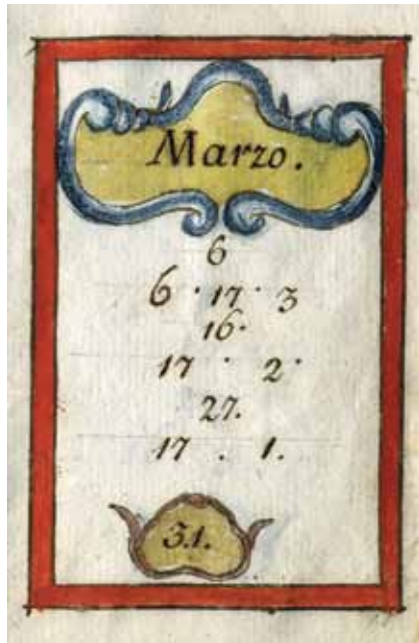 Marzo.
6
6 · 17 · 3
16.
17 · 2·
27.
17 . 1.
31.